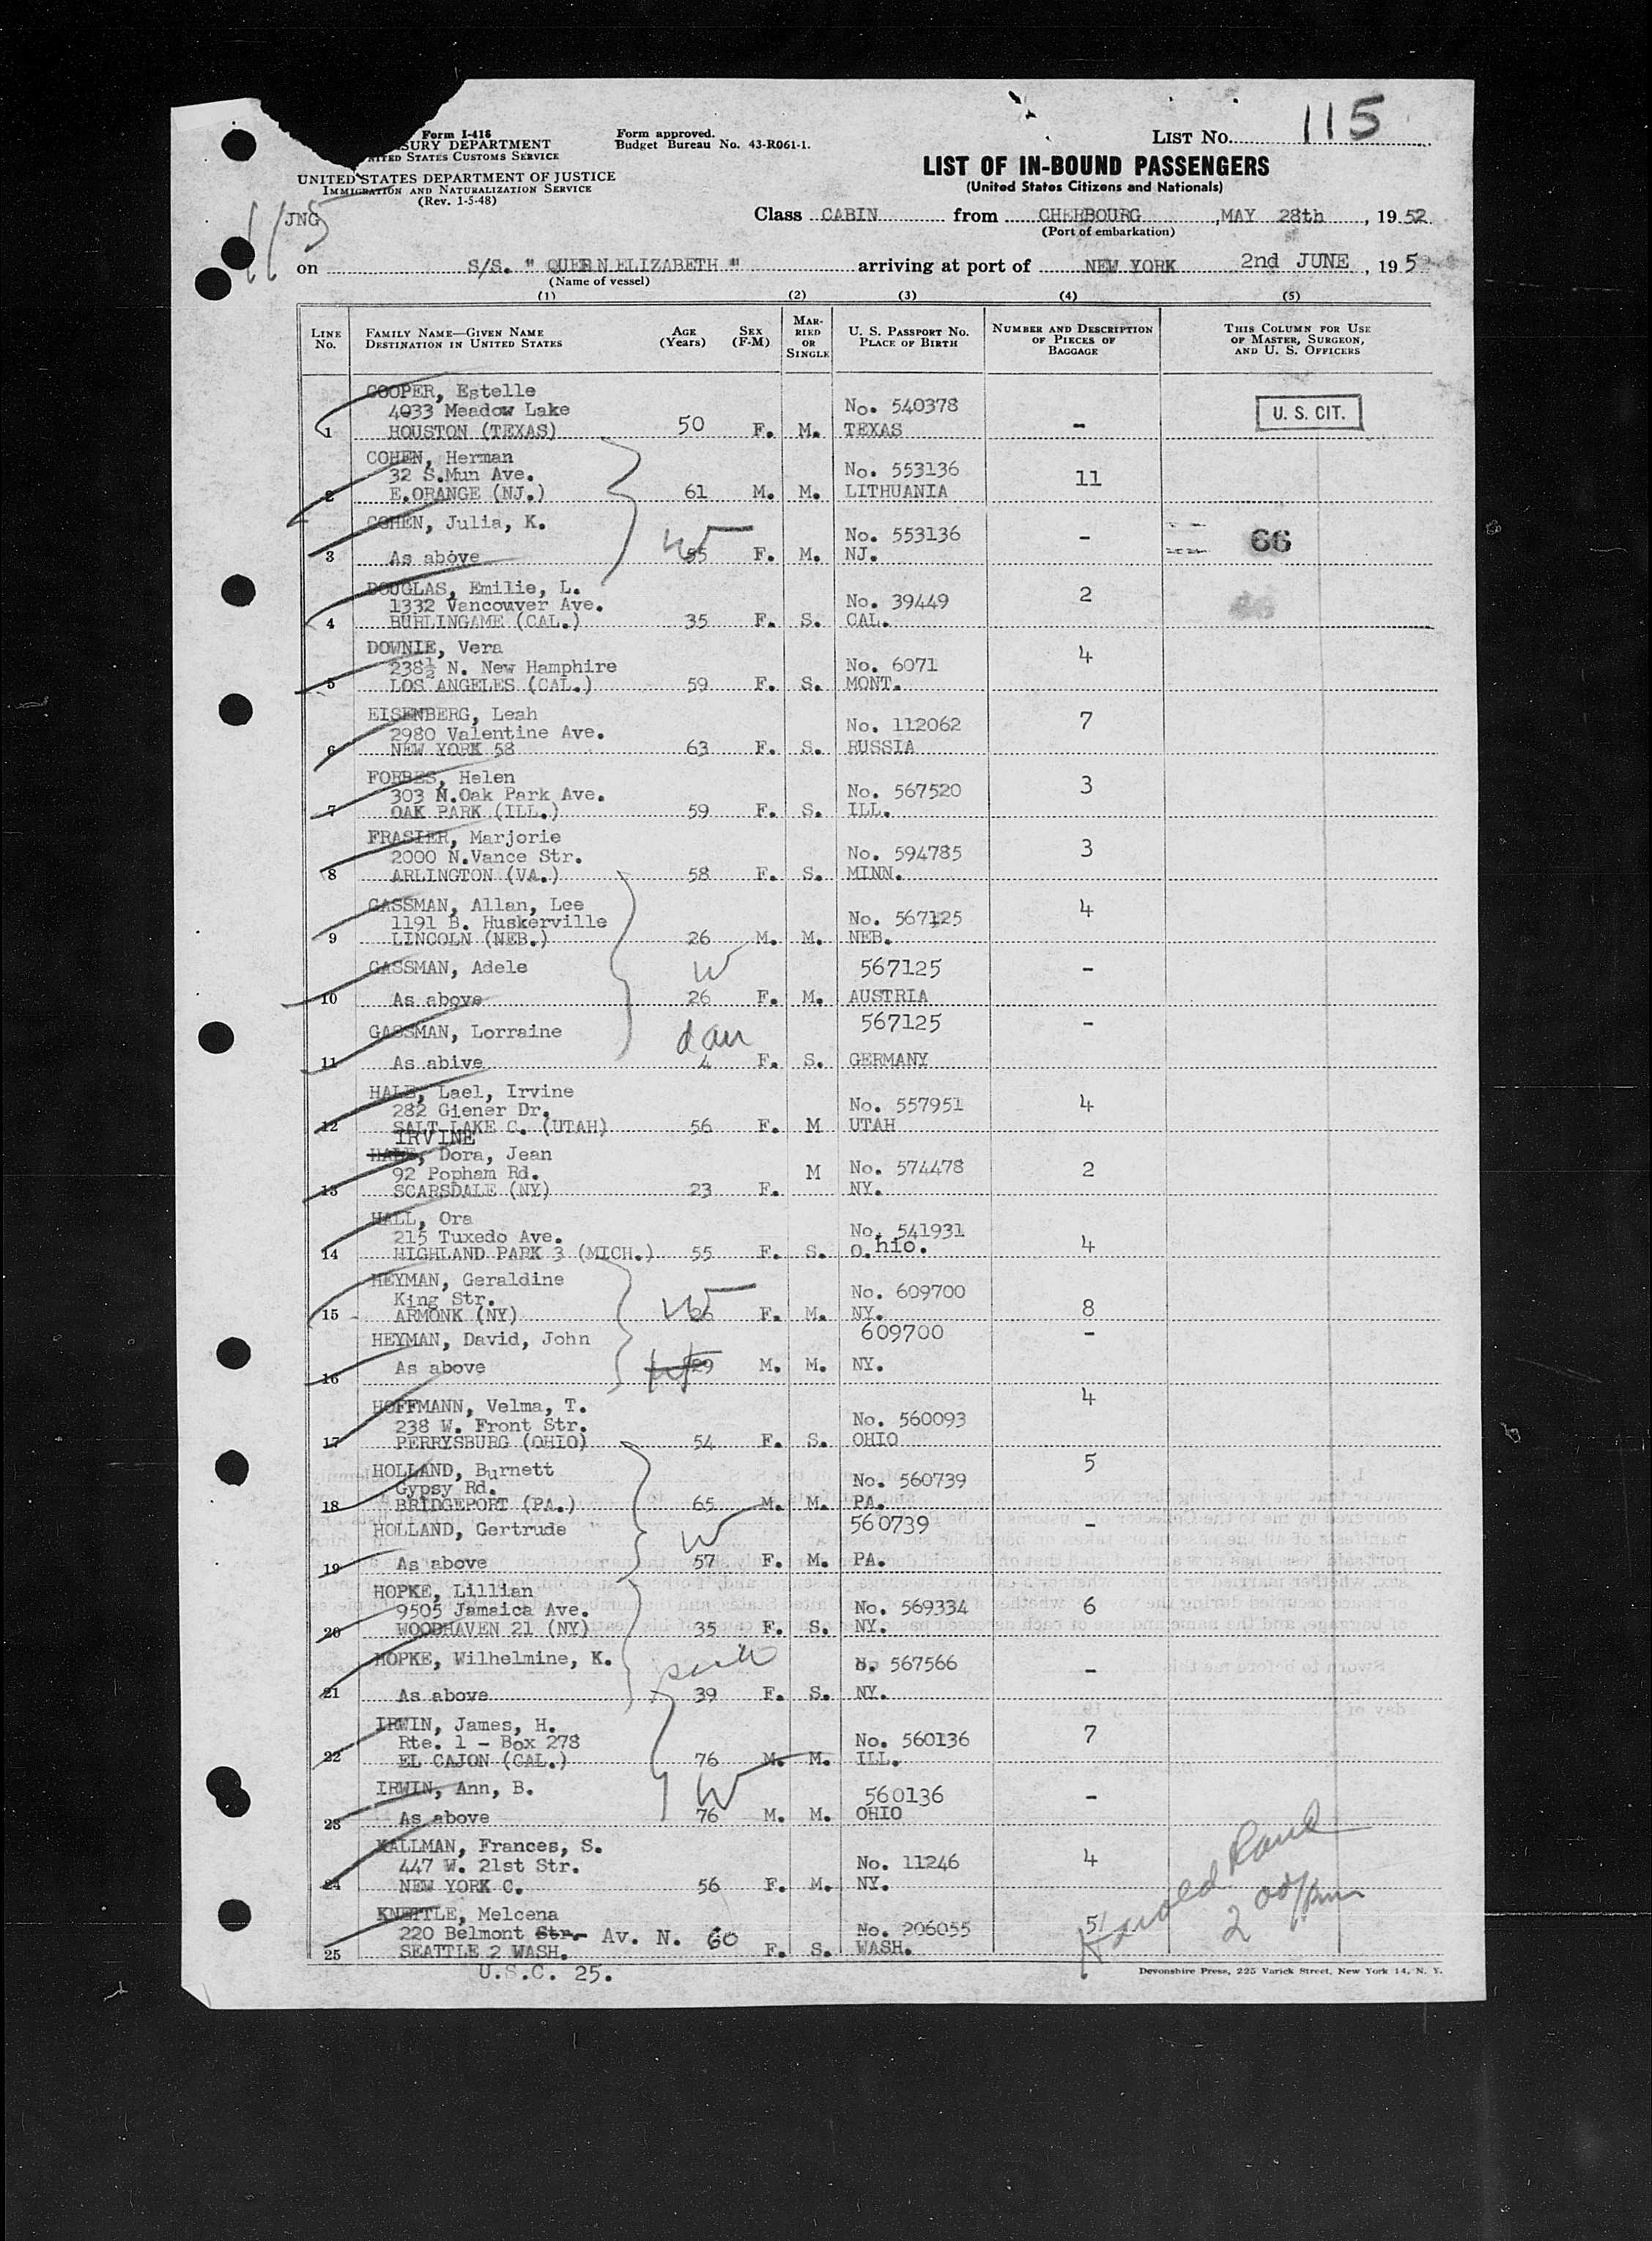 LIST No. 115
Form I-418
Form approved.
SURY DEPARTMENT
Budget Bureau No. 43-R061-1.
UNITED STATES CUSTOMS SERVICE
LIST OF IN-BOUND PASSENGERS
UNITED STATES DEPARTMENT OF JUSTICE
(United States Citizens and Nationals)
IMMIGRATION AND NATURALIZATION SERVICE
(Rev. 1-5-48)
JNG
115
Class CABIN from CHERBOURG, MAY 28th, 1952
(Port of embarkation)
on S/S. " QUEEN ELIZABETH " arriving at port of NEW YORK 2nd JUNE, 195
(Name of vessel)
(1) (2) (3) (4) (5)
LINE No. FAMILY NAME—GIVEN NAME DESTINATION IN UNITED STATES AGE (Years) SEX (F-M) MARRIED OR SINGLE U. S. PASSPORT No. PLACE OF BIRTH NUMBER AND DESCRIPTION OF PIECES OF BAGGAGE THIS COLUMN FOR USE OF MASTER, SURGEON, AND U. S. OFFICERS
COOPER, Estelle
4033 Meadow Lake No. 540378 U. S. CIT.
1 HOUSTON (TEXAS) 50 F. M. TEXAS -
COHEN, Herman
32 S.Mun Ave. No. 553136 11
2 E.ORANGE (NJ.) 61 M. M. LITHUANIA
COHEN, Julia, K. W No. 553136 - 66
3 As above 55 F. M. NJ.
DOUGLAS, Emilie, L.
1332 Vancouver Ave. No. 39449 2
4 BURLINGAME (CAL.) 35 F. S. CAL.
DOWNIE, Vera
238½ N. New Hamphire No. 6071 4
5 LOS ANGELES (CAL.) 59 F. S. MONT.
EISENBERG, Leah
2980 Valentine Ave. No. 112062 7
6 NEW YORK 58 63 F. S. RUSSIA
FORBES, Helen
303 N.Oak Park Ave. No. 567520 3
7 OAK PARK (ILL.) 59 F. S. ILL.
FRASIER, Marjorie
2000 N.Vance Str. No. 594785 3
8 ARLINGTON (VA.) 58 F. S. MINN.
GASSMAN, Allan, Lee
1191 B. Huskerville No. 567125 4
9 LINCOLN (NEB.) 26 M. M. NEB.
GASSMAN, Adele W 567125 -
10 As above 26 F. M. AUSTRIA
GASSMAN, Lorraine dau 567125 -
11 As abive 4 F. S. GERMANY
HALE, Lael, Irvine
282 Giener Dr. No. 557951 4
12 SALT LAKE C. (UTAH) 56 F. M UTAH
IRVINE
HALE, Dora, Jean
92 Popham Rd. M No. 574478 2
13 SCARSDALE (NY) 23 F. NY.
HALL, Ora
215 Tuxedo Ave. No. 541931
14 HIGHLAND PARK 3 (MICH.) 55 F. S. O.hio. 4
HEYMAN, Geraldine
King Str. W No. 609700
15 ARMONK (NY) 26 F. M. NY. 8
HEYMAN, David, John 609700 -
16 As above 29 M. M. NY.
HOFFMANN, Velma, T. 4
238 W. Front Str. No. 560093
17 PERRYSBURG (OHIO) 54 F. S. OHIO
HOLLAND, Burnett 5
Gypsy Rd. No. 560739
18 BRIDGEPORT (PA.) 65 M. M. PA.
HOLLAND, Gertrude W 560739 -
19 As above 57 F. M. PA.
HOPKE, Lillian
9505 Jamaica Ave. No. 569334 6
20 WOODHAVEN 21 (NY) 35 F. S. NY.
HOPKE, Wilhelmine, K. N. 567566 -
21 As above 39 F. S. NY.
IRWIN, James, H.
Rte. 1 - Box 278 No. 560136 7
22 EL CAJON (CAL.) 76 M. M. ILL.
IRWIN, Ann, B. W 560136 -
23 As above 76 M. M. OHIO
KALLMAN, Frances, S.
447 W. 21st Str. No. 11246 4
24 NEW YORK C. 56 F. M. NY.
KNETTLE, Melcena
220 Belmont Str. Av. N. 60 No. 206055 5
25 SEATTLE 2 WASH. F. S. WASH.
U.S.C. 25.
2 00/pm
Devonshire Press, 225 Varick Street, New York 14, N. Y.